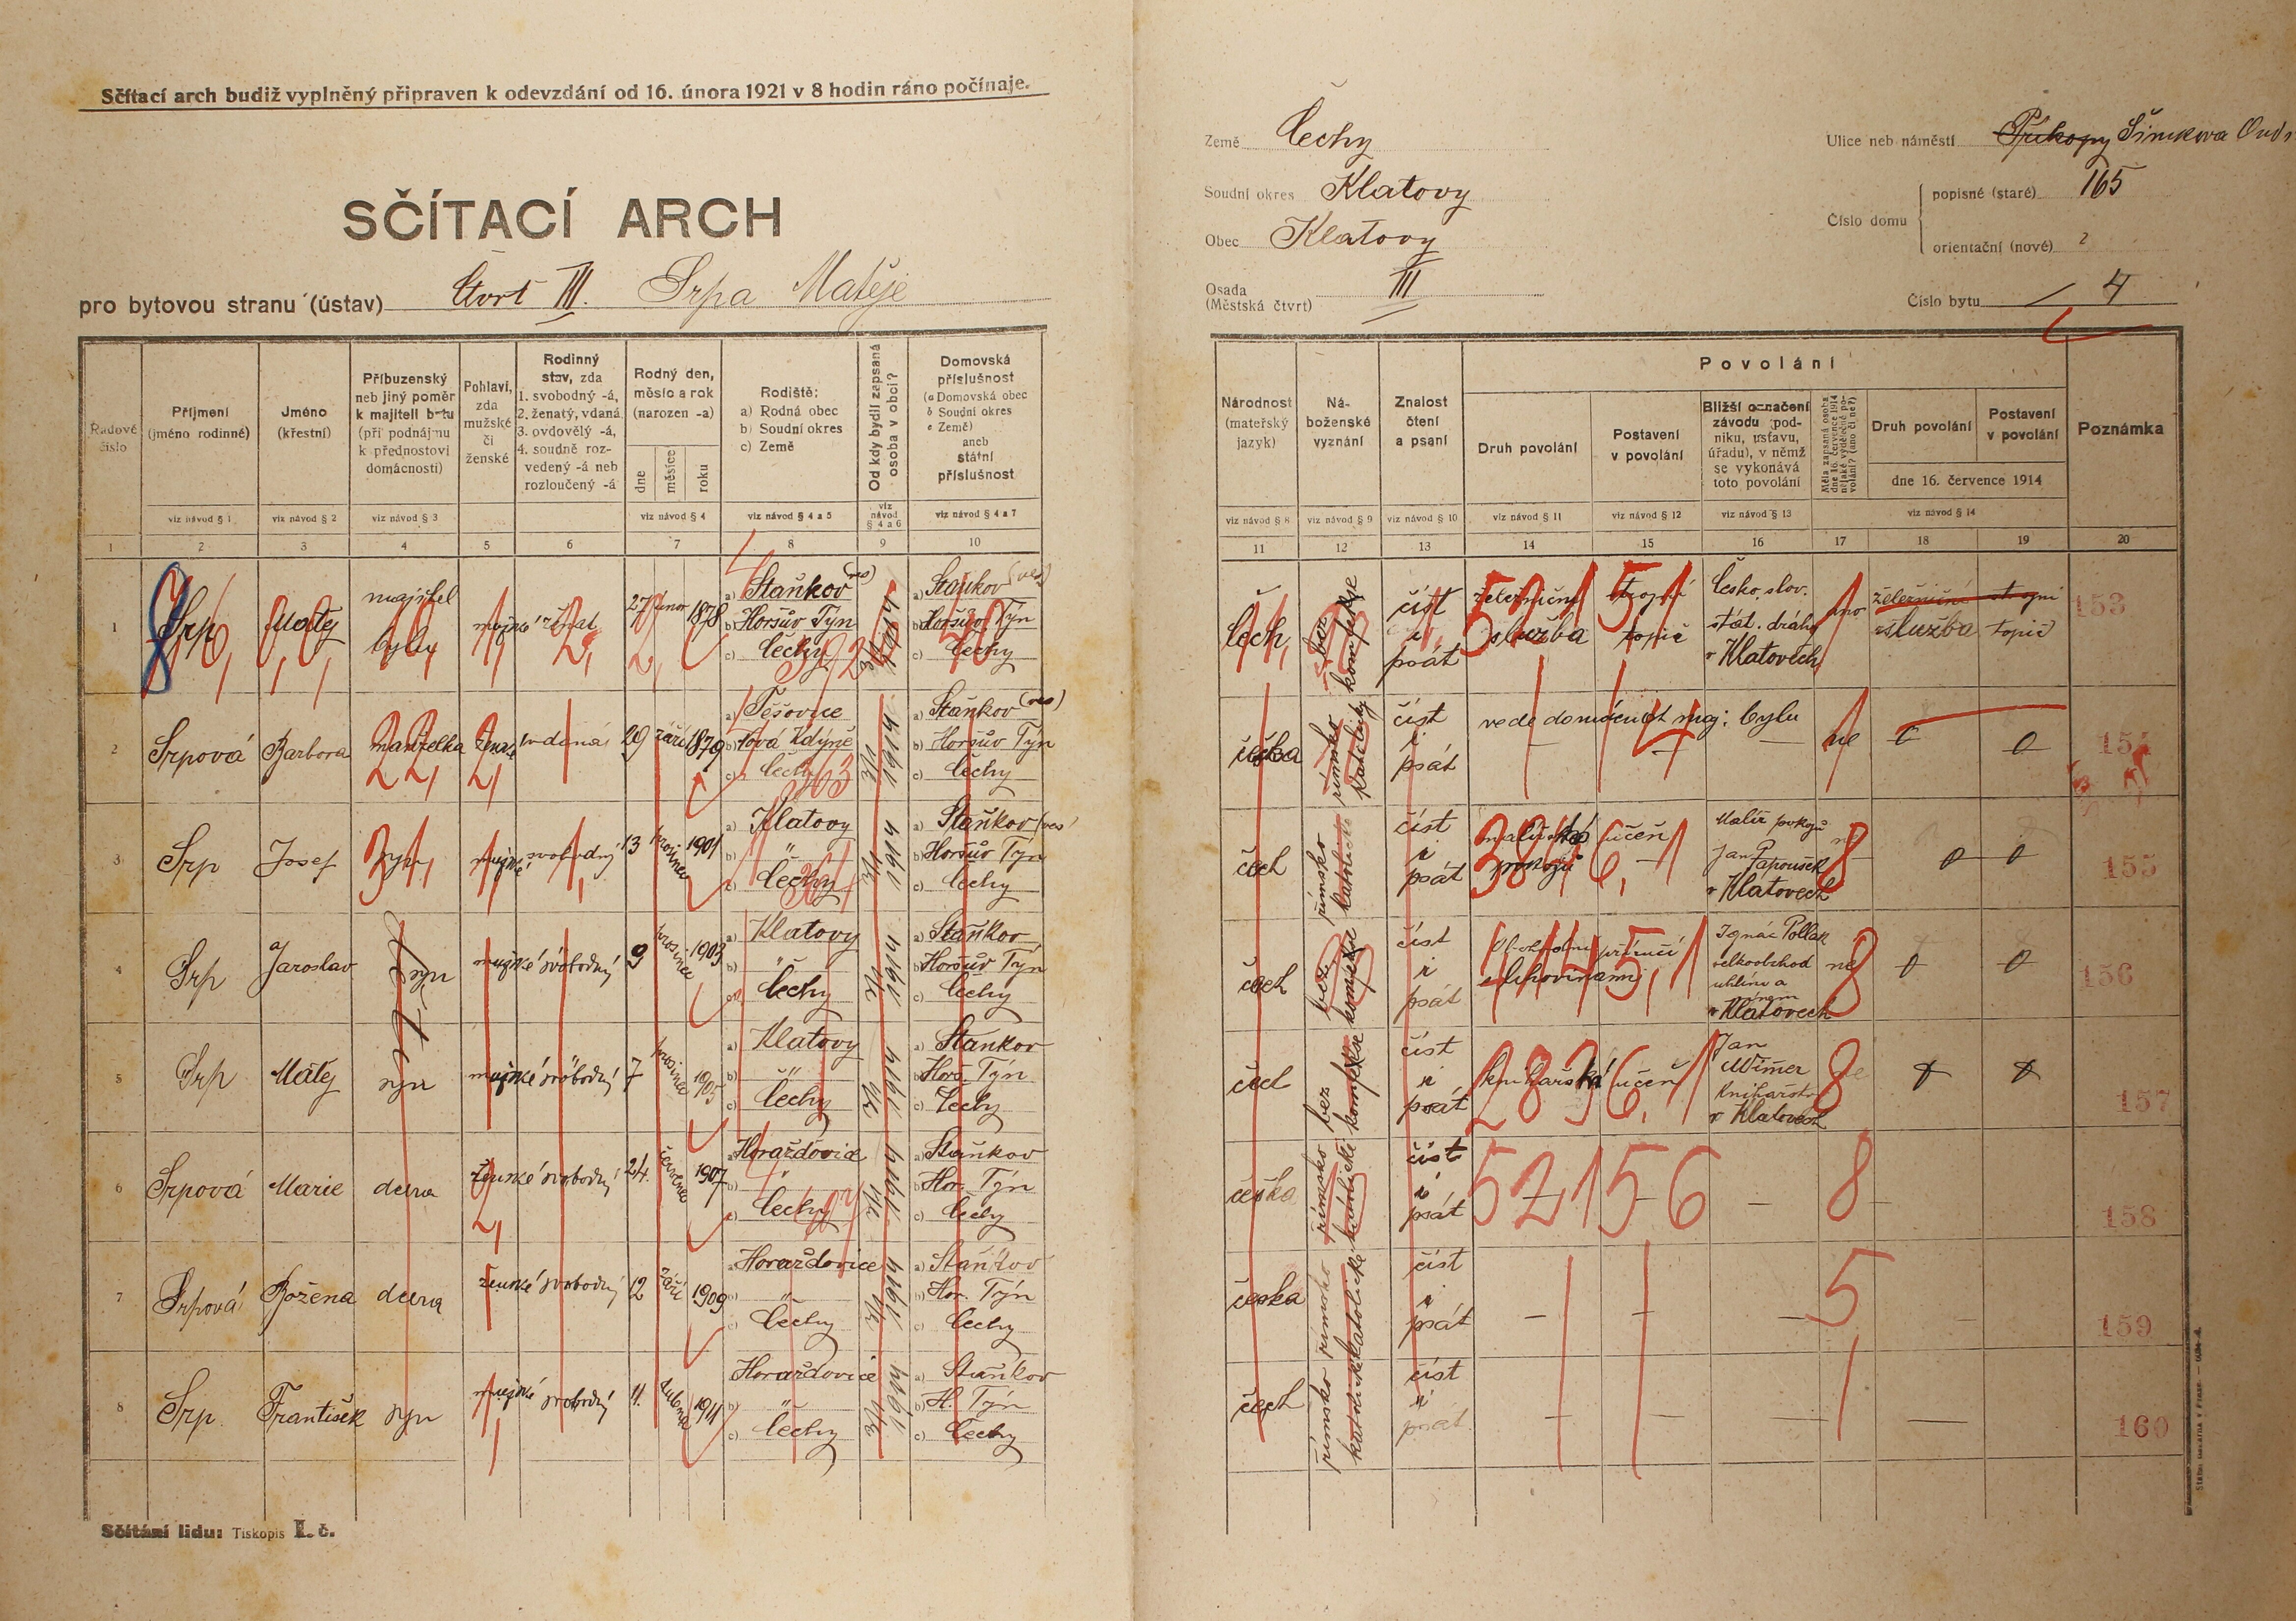 Sčítací arch budiž vyplněný připraven k odevzdání od 16. února 1921 v 8 hodin ráno počínaje.
SČÍTACÍ ARCH
pro bytovou stranu (ústav) čtvrť III. Srpa Matěje
Země Čechy
Soudní okres Klatovy
Obec Klatovy
Osada III
(Městská čtvrť)
Ulice neb náměstí Příkopy Šimkova
Číslo domu
popisné (staré) 165
orientační (nové) 2
Číslo bytu 4
Řadové číslo
Příjmení (jméno rodinné)
Jméno (křestní)
Příbuzenský neb jiný poměr k majiteli bytu (při podnájmu k přednostovi domácnosti)
Pohlaví, zda mužské či ženské
Rodinný stav, zda
1. svobodný -á,
2. ženatý, vdaná
3. ovdovělý -á,
4. soudně rozvedený -á neb rozloučený -á
Rodný den, měsíc a rok (narozen -a)
dne měsíce roku
Rodiště:
a) Rodná obec
b) Soudní okres
c) Země
Od kdy bydlí zapsaná osoba v obci?
Domovská příslušnost
(a Domovská obec
b Soudní okres
c Země)
aneb státní příslušnost
viz návod § 1 viz návod § 2 viz návod § 3 viz návod § 4 viz návod § 4 a 5 viz návod § 4 a 6 viz návod § 4 a 7
1 2 3 4 5 6 7 8 9 10
Národnost (mateřský jazyk)
Náboženské vyznání
Znalost čtení a psaní
Povolání
Druh povolání
Postavení v povolání
Bližší označení závodu (podniku, ústavu, úřadu), v němž se vykonává toto povolání
Měla zapsaná osoba dne 16. července 1914 nějaké výdělečné povolání? (ano či ne?)
Druh povolání
Postavení v povolání
dne 16. července 1914
Poznámka
viz návod § 8 viz návod § 9 viz návod § 10 viz návod § 11 viz návod § 12 viz návod § 13 viz návod § 14
11 12 13 14 15 16 17 18 19 20
1 Srp Matěj majitel bytu mužské ženat 27 února 1878
a) Staňkov (ves)
b) Horšův Týn
c) Čechy
1914
a) Staňkov (ves)
b) Horšův Týn
c) Čechy
čech bez konfese číst i psát železniční služba strojní topič Česko. slov. stát. dráhy v Klatovech ano železniční služba strojní topič 153
2 Srpová Barbora manželka ženské vdaná 29 září 1879
a) Těšovice
b) Nová Kdyně
c) Čechy
1914
a) Staňkov (ves)
b) Horšův Týn
c) Čechy
češka římsko katolický číst i psát vede domácnost maj. bytu — — — ne 0 0
3 Srp Josef syn mužské svobodný 13 prosince 1901
a) Klatovy
b) "
c) Čechy
1914
a) Staňkov (ves)
b) Horšův Týn
c) Čechy
čech římsko katolické číst i psát malířství pokojů učeň Malíř pokojů Jan Papoušek v Klatovech ne 0 0 155
4 Srp Jaroslav syn mužské svobodný 9 prosince 1903
a) Klatovy
b) "
c) Čechy
1914
a) Staňkov
b) Horšův Týn
c) Čechy
čech bez konfese číst i psát Obchodní příručí Ignác Pollak velkoobchod uhlím a v Klatovech ne 0 0 156
5 Srp Matěj syn mužské svobodný 7 prosince 1905
a) Klatovy
b) "
c) Čechy
1914
a) Staňkov
b) Horš. Týn
c) Čechy
čech bez konfese číst i psát knihařská učeň Jan Wimer Knihařství v Klatovech ne 0 0 157
6 Srpová Marie dcera ženské svobodný 24. července 1907
a) Horažďovice
b) "
c) Čechy
1914
a) Staňkov
b) Hor. Týn
c) Čechy
češka římsko katolické číst i psát — — — — 158
7 Srpová Božena dcera ženské svobodný 12 září 1909
a) Horažďovice
b) "
c) Čechy
1914
a) Staňkov
b) Hor. Týn
c) Čechy
česka římsko katolické číst i psát — — — — 159
8 Srp František syn mužské svobodný 11. dubna 1911
a) Horažďovice
b) "
c) Čechy
1914
a) Staňkov
b) H. Týn
c) Čechy
čech římsko katolické číst i psát — — — — — 160
Sčítání lidu: Tiskopis I. č.